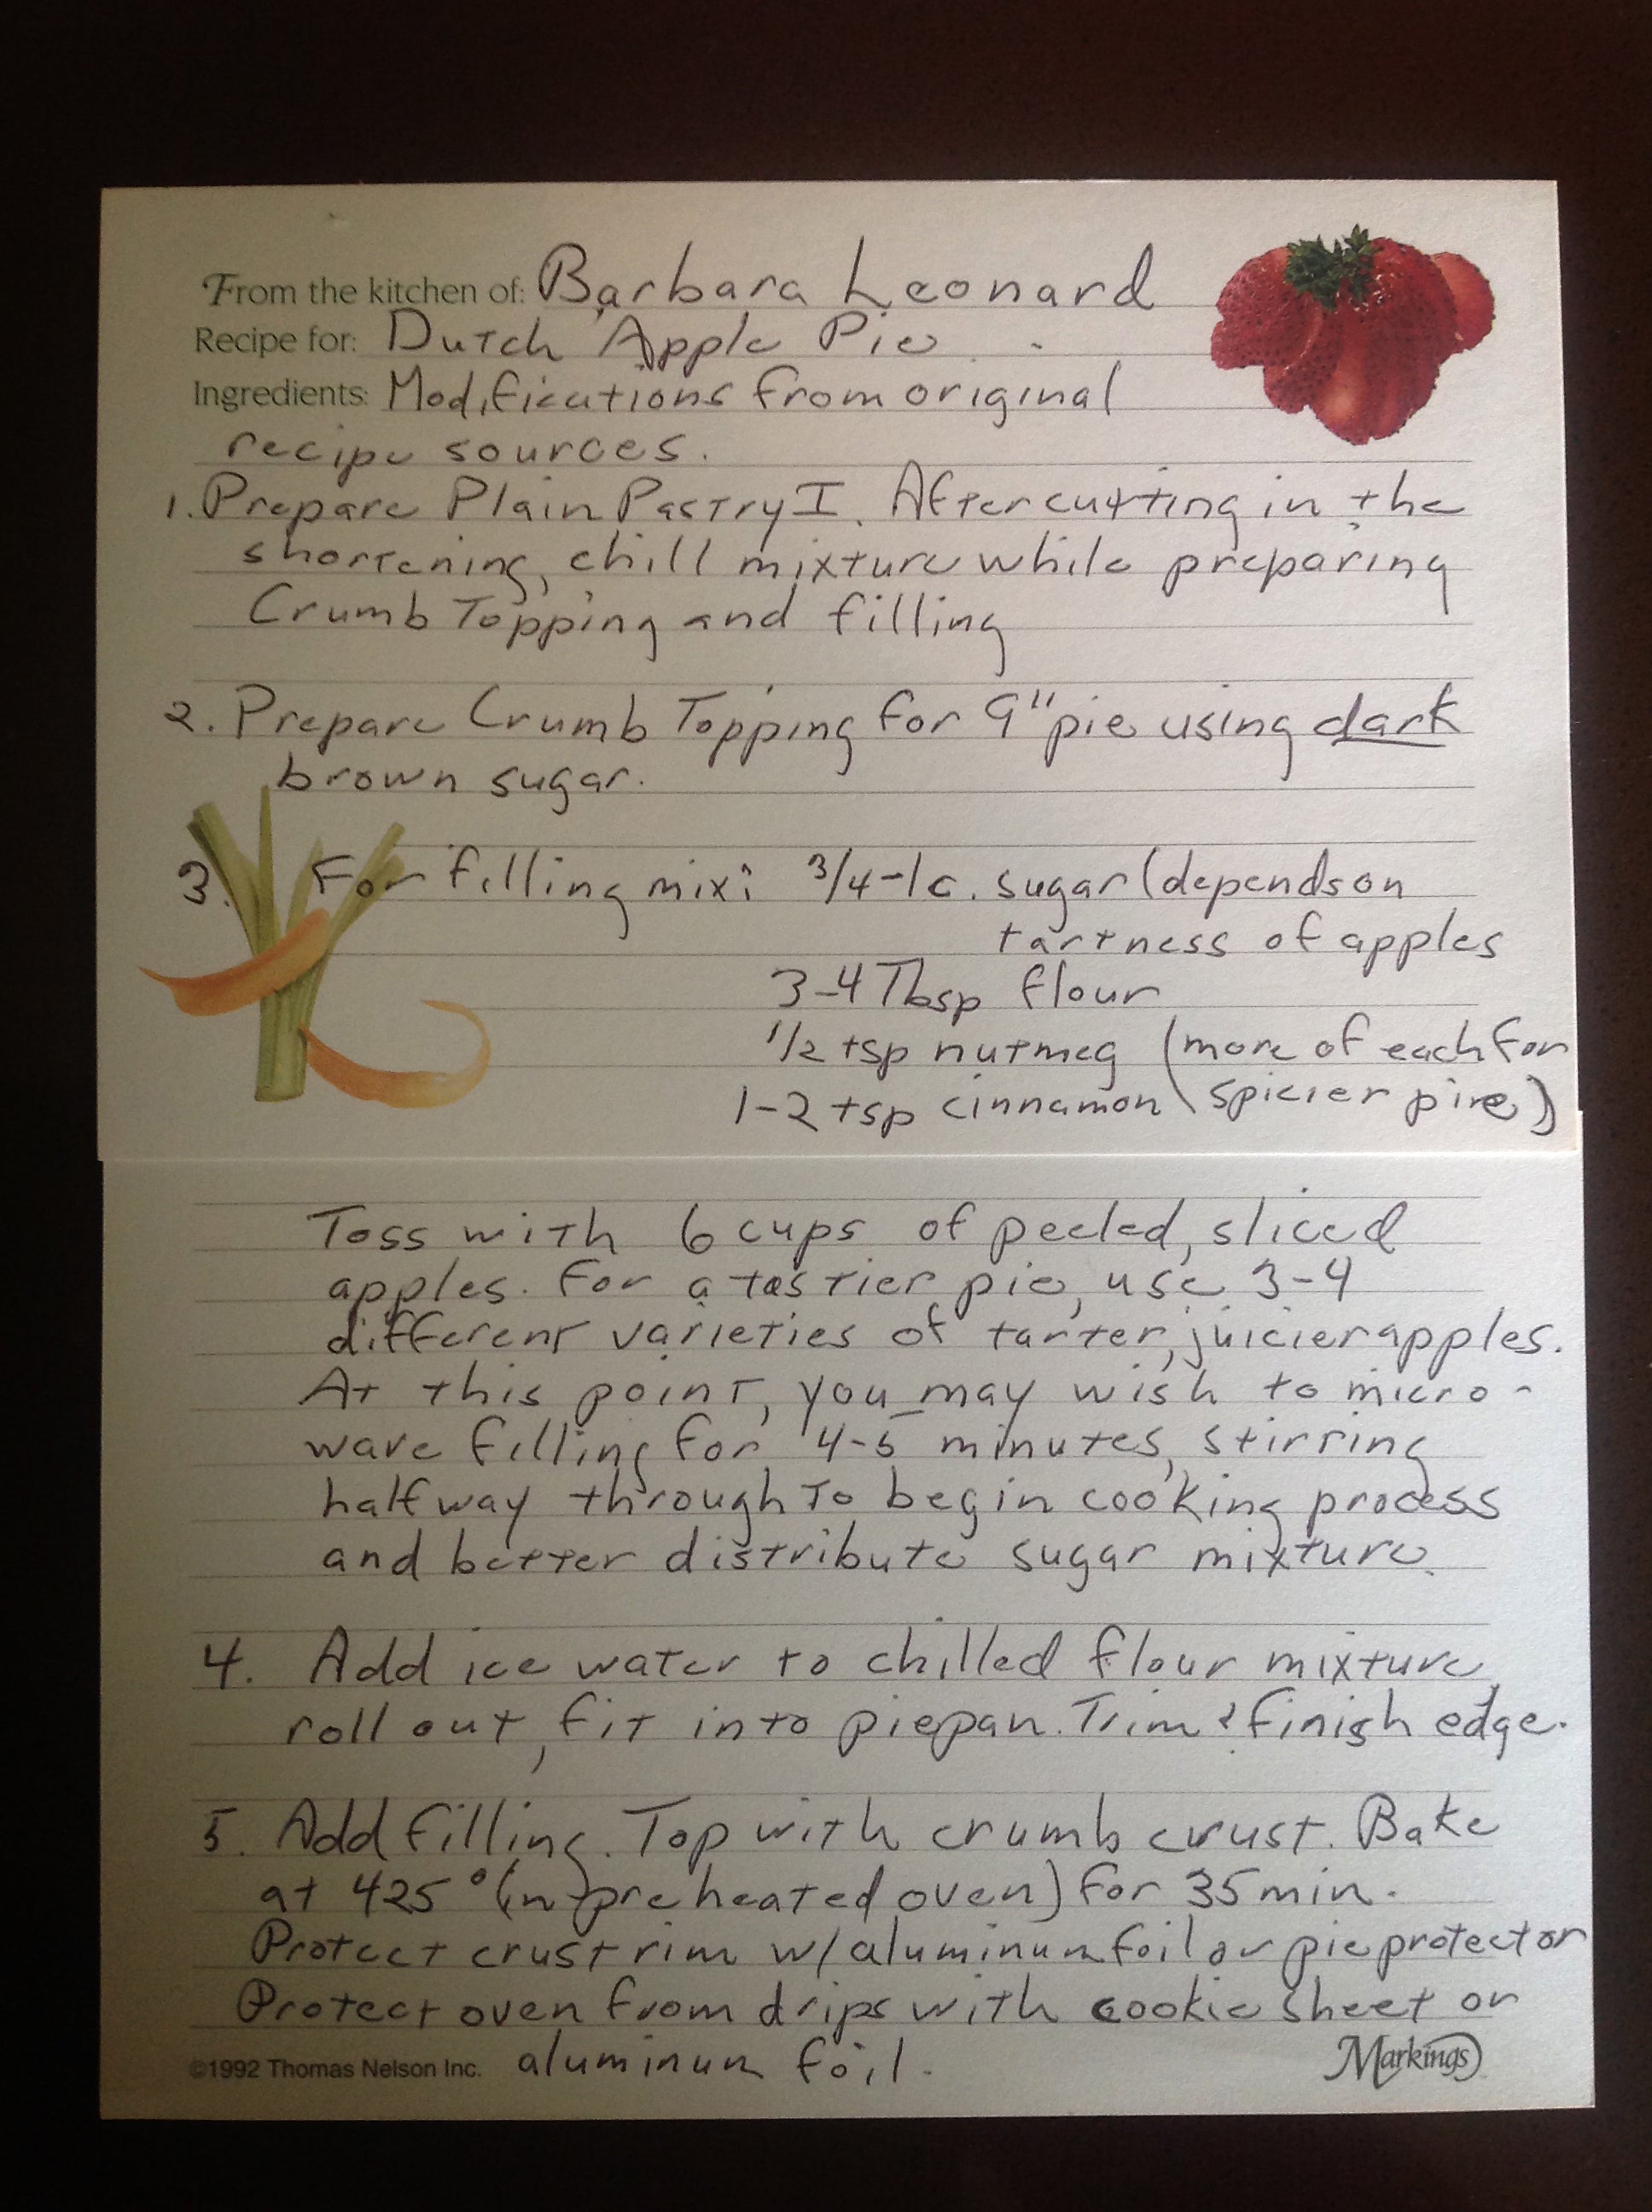 From the kitchen of: Barbara Leonard
Recipe for: Dutch Apple Pie
Ingredients: Modifications from original
recipe sources.
1. Prepare Plain Pastry I. After cutting in the
shortening, chill mixture while preparing
Crumb Topping and filling
2. Prepare Crumb Topping for 9" pie using dark
brown sugar.
3. For filling mix: 3/4-1c. sugar (depends on
tartness of apples
3-4 Tbsp flour
1/2 tsp nutmeg (more of each for
1-2 tsp cinnamon spicier pire)
Toss with 6 cups of peeled, sliced
apples. For a tastier pie, use 3-4
different varieties of tarter, juicier apples.
At this point, you may wish to micro-
wave filling for 4-5 minutes, stirring
halfway through to begin cooking process
and better distribute sugar mixture.
4. Add ice water to chilled flour mixture,
roll out, fit into piepan. Trim & finish edge.
5. Add filling. Top with crumb crust. Bake
at 425° (in preheated oven) for 35 min.
Protect crust rim w/ aluminum foil or pie protector
Protect oven from drips with cookie sheet or
aluminum foil.
©1992 Thomas Nelson Inc.
Markings